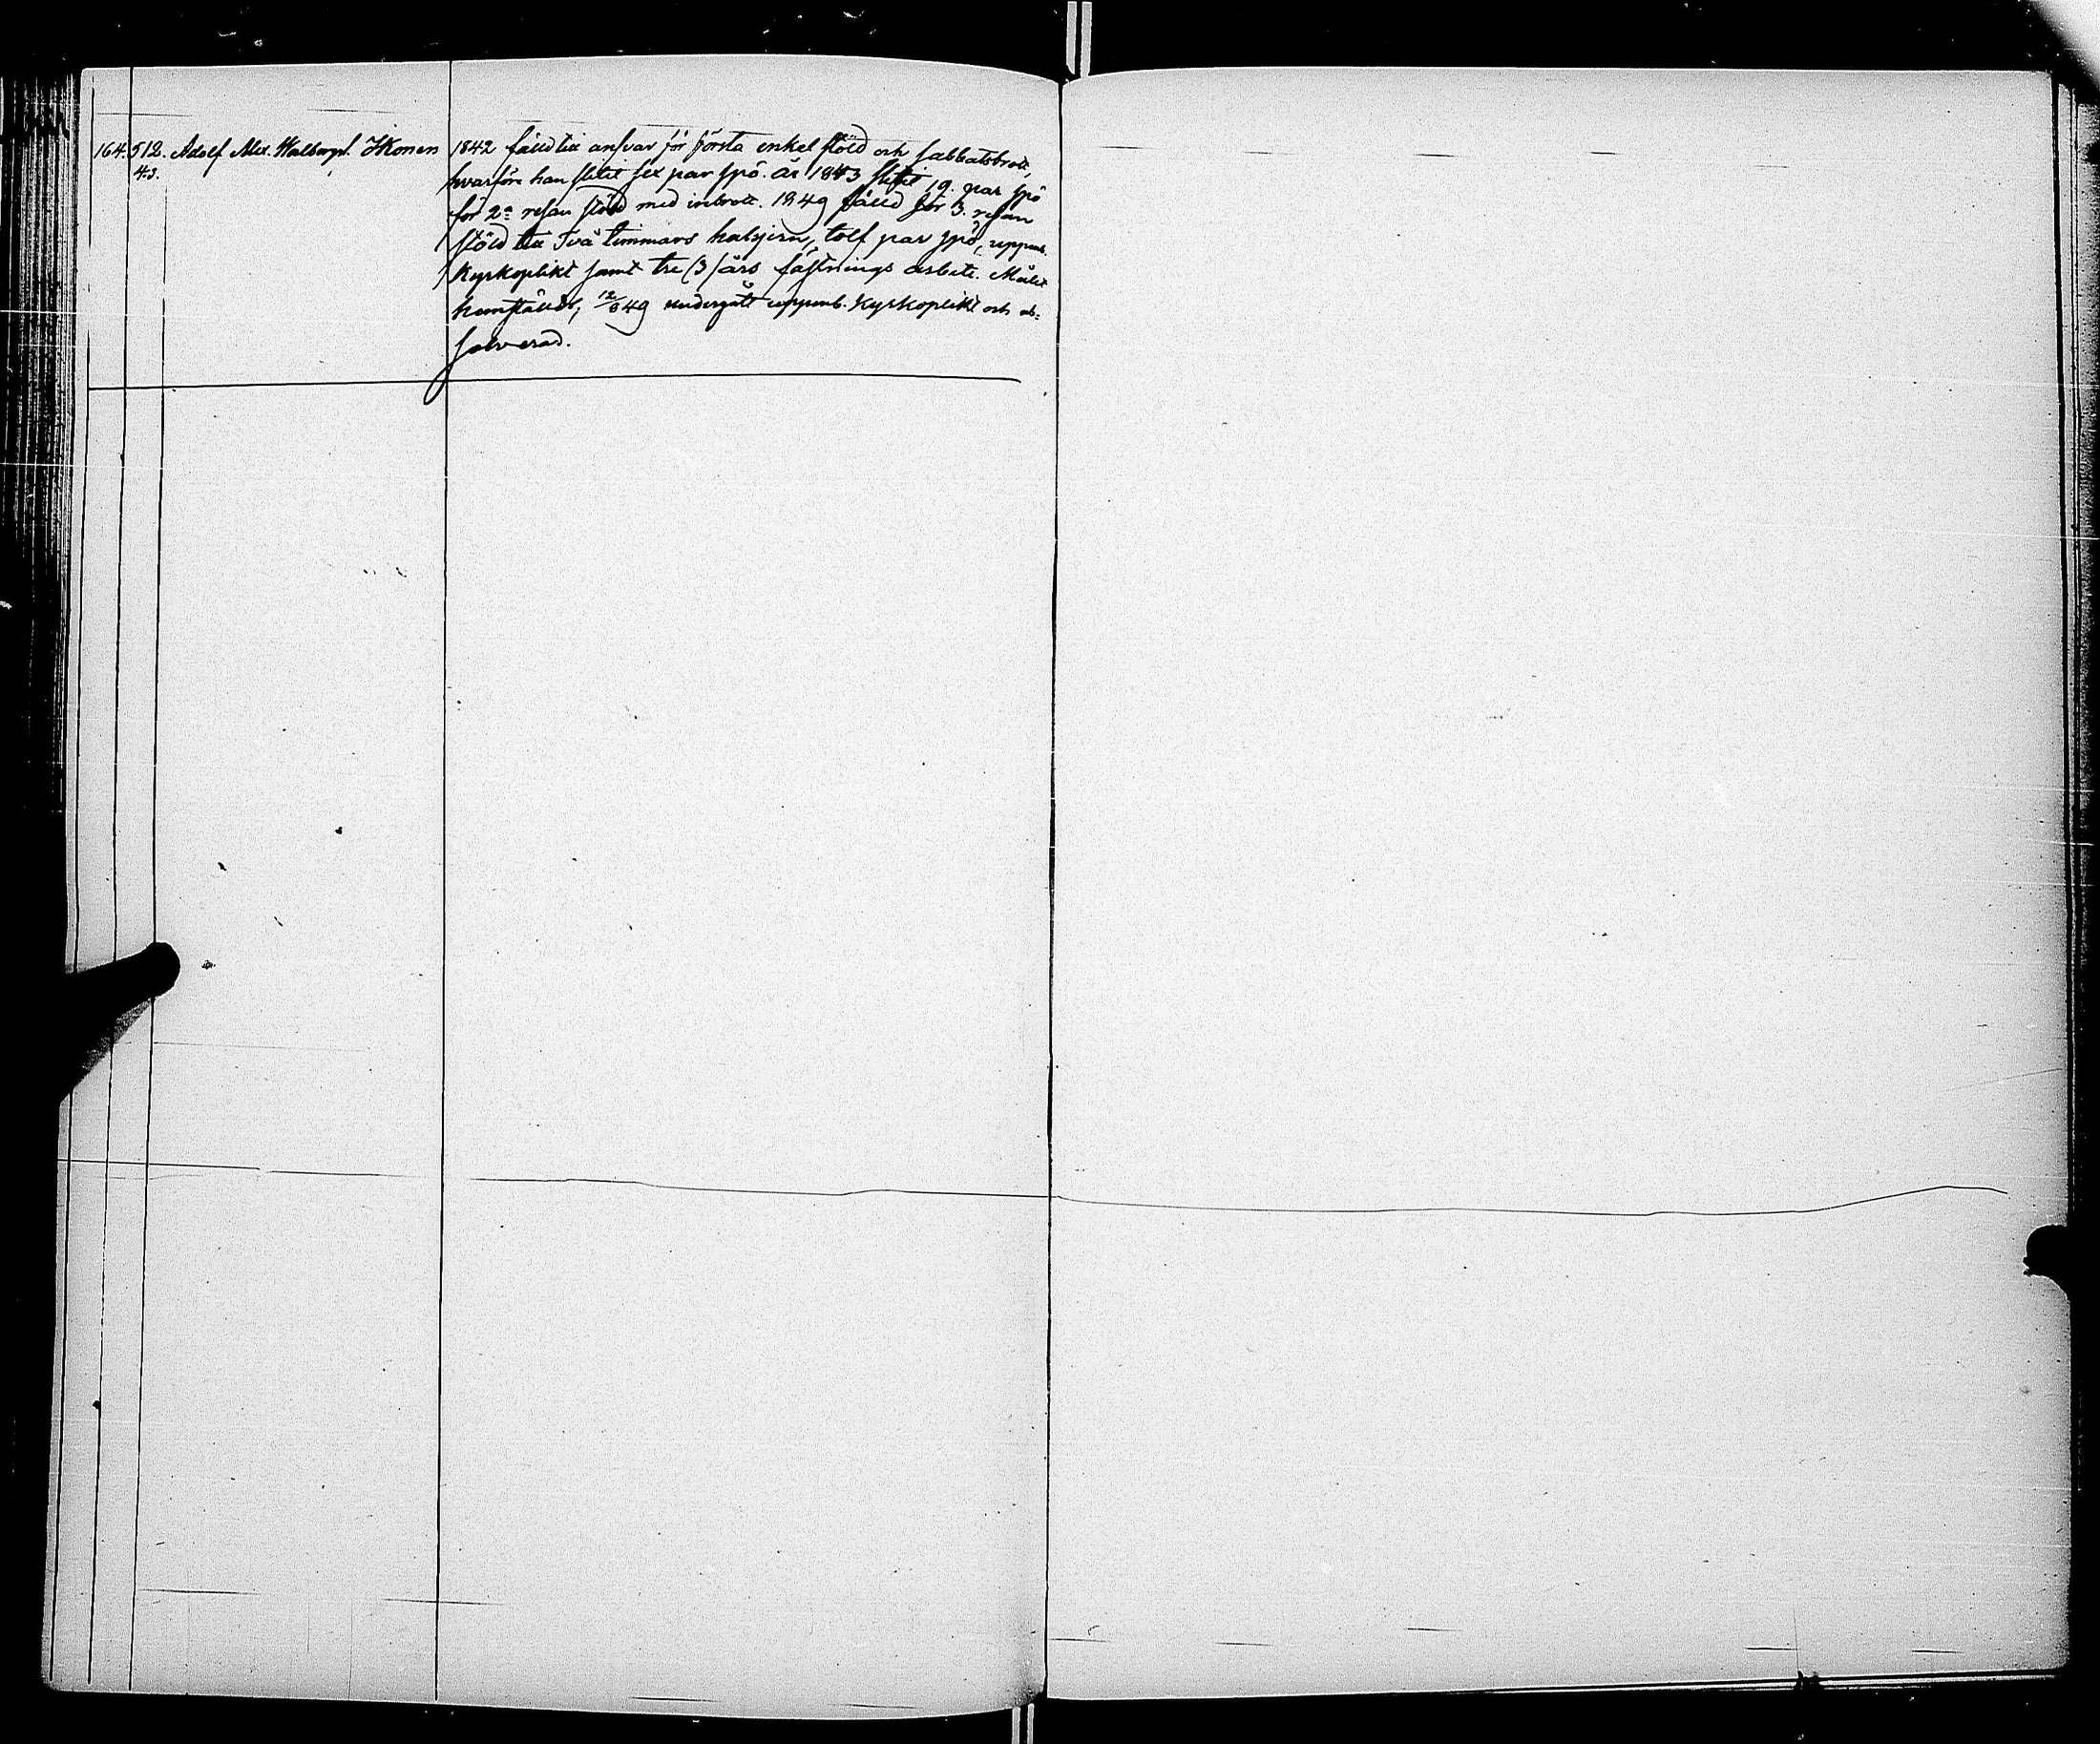 164. 512. Adolf Alex. Walbergss. Ikonen
43.
1842 fälld till ansvar för första enkel stöld och sabbatsbrott,
hvarföre han slitit sex par spö. År 1843 slitit 19. par spö
för 2a resan stöld med inbrott. 1849 fälld för 3. resan
stöld till Två timmars halsjern, tolf par spö, uppenb.
Kyrkoplikt samt tre (3) års fästnings arbete. Målet
hemställdt, 12/8 49 undergått uppenb. Kyrkoplikt och ab=
solverad.